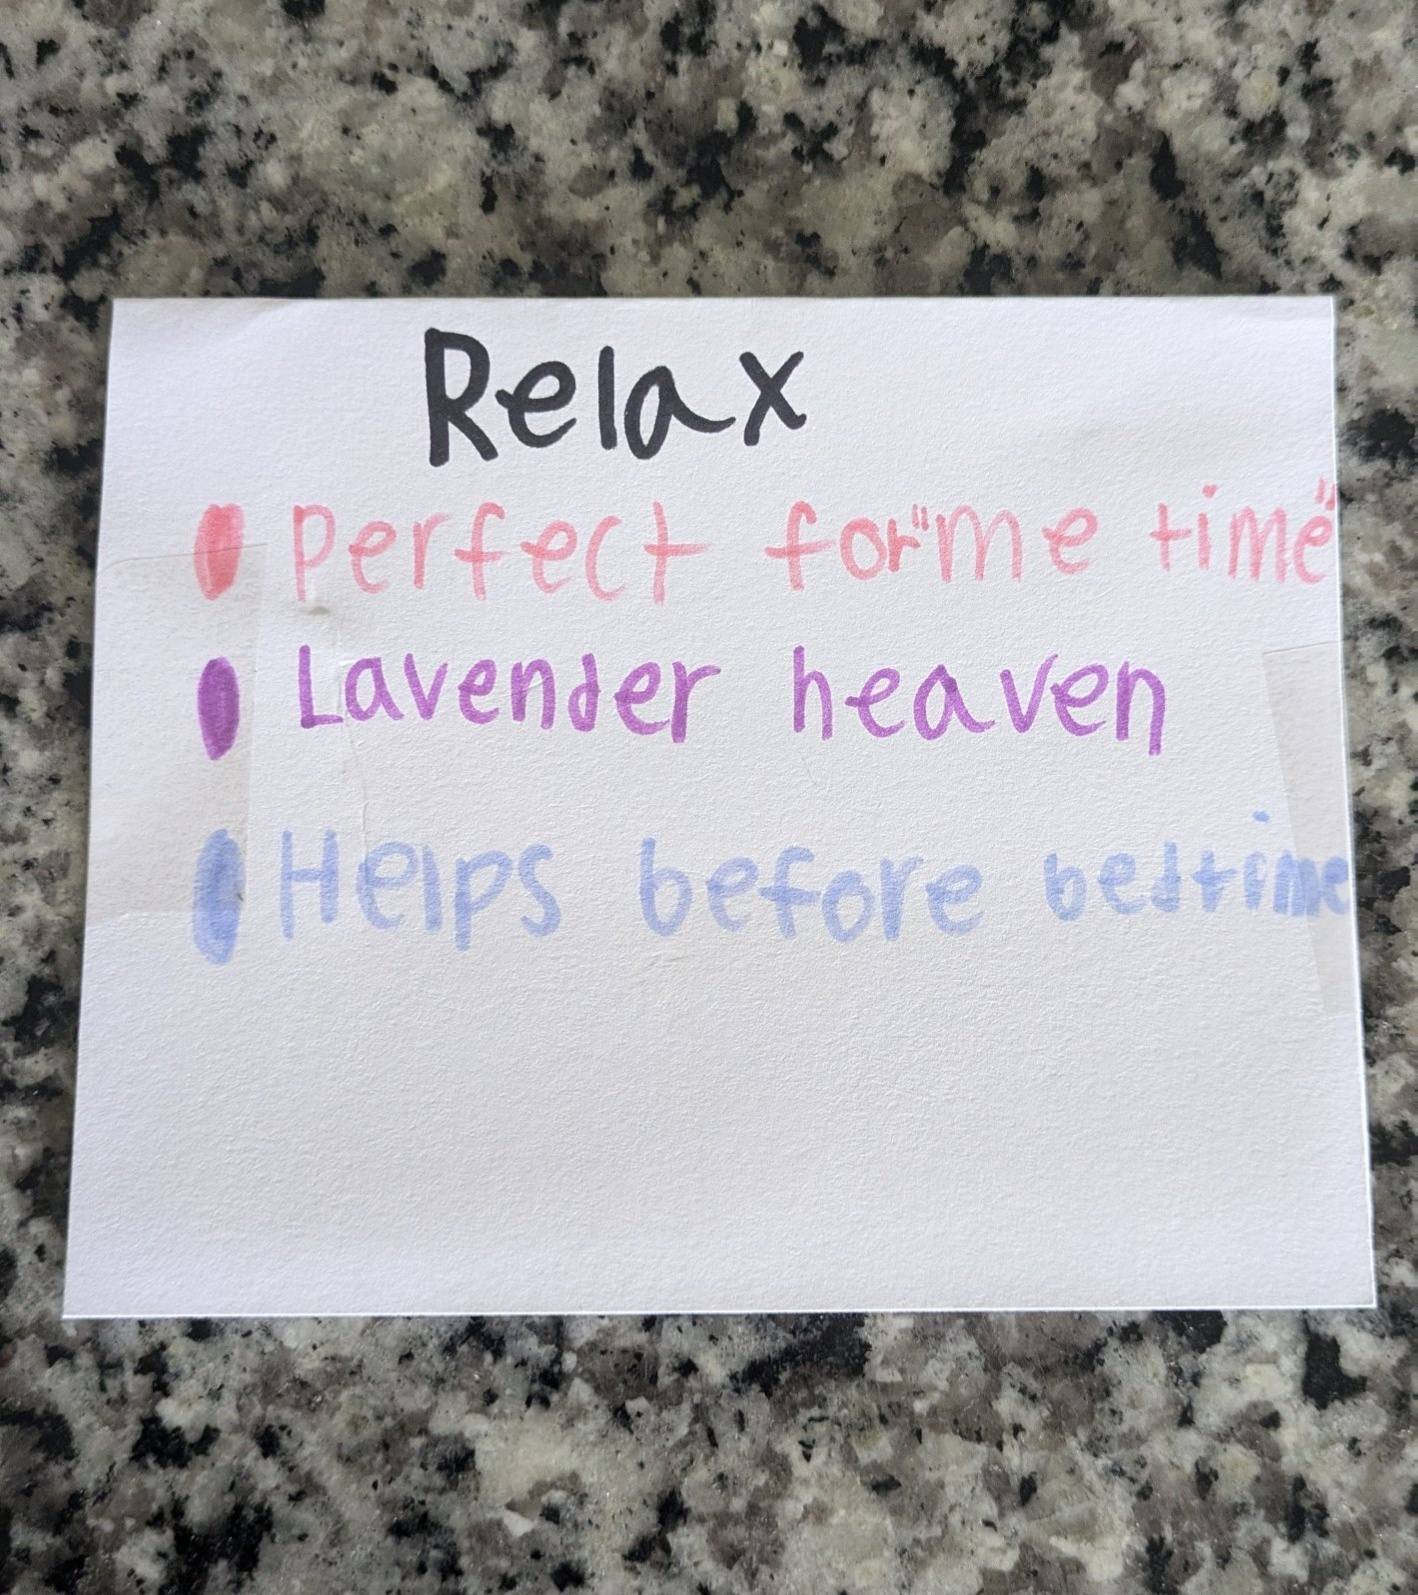 Relax
Perfect for "me time"
Lavender heaven
Helps before bedtime